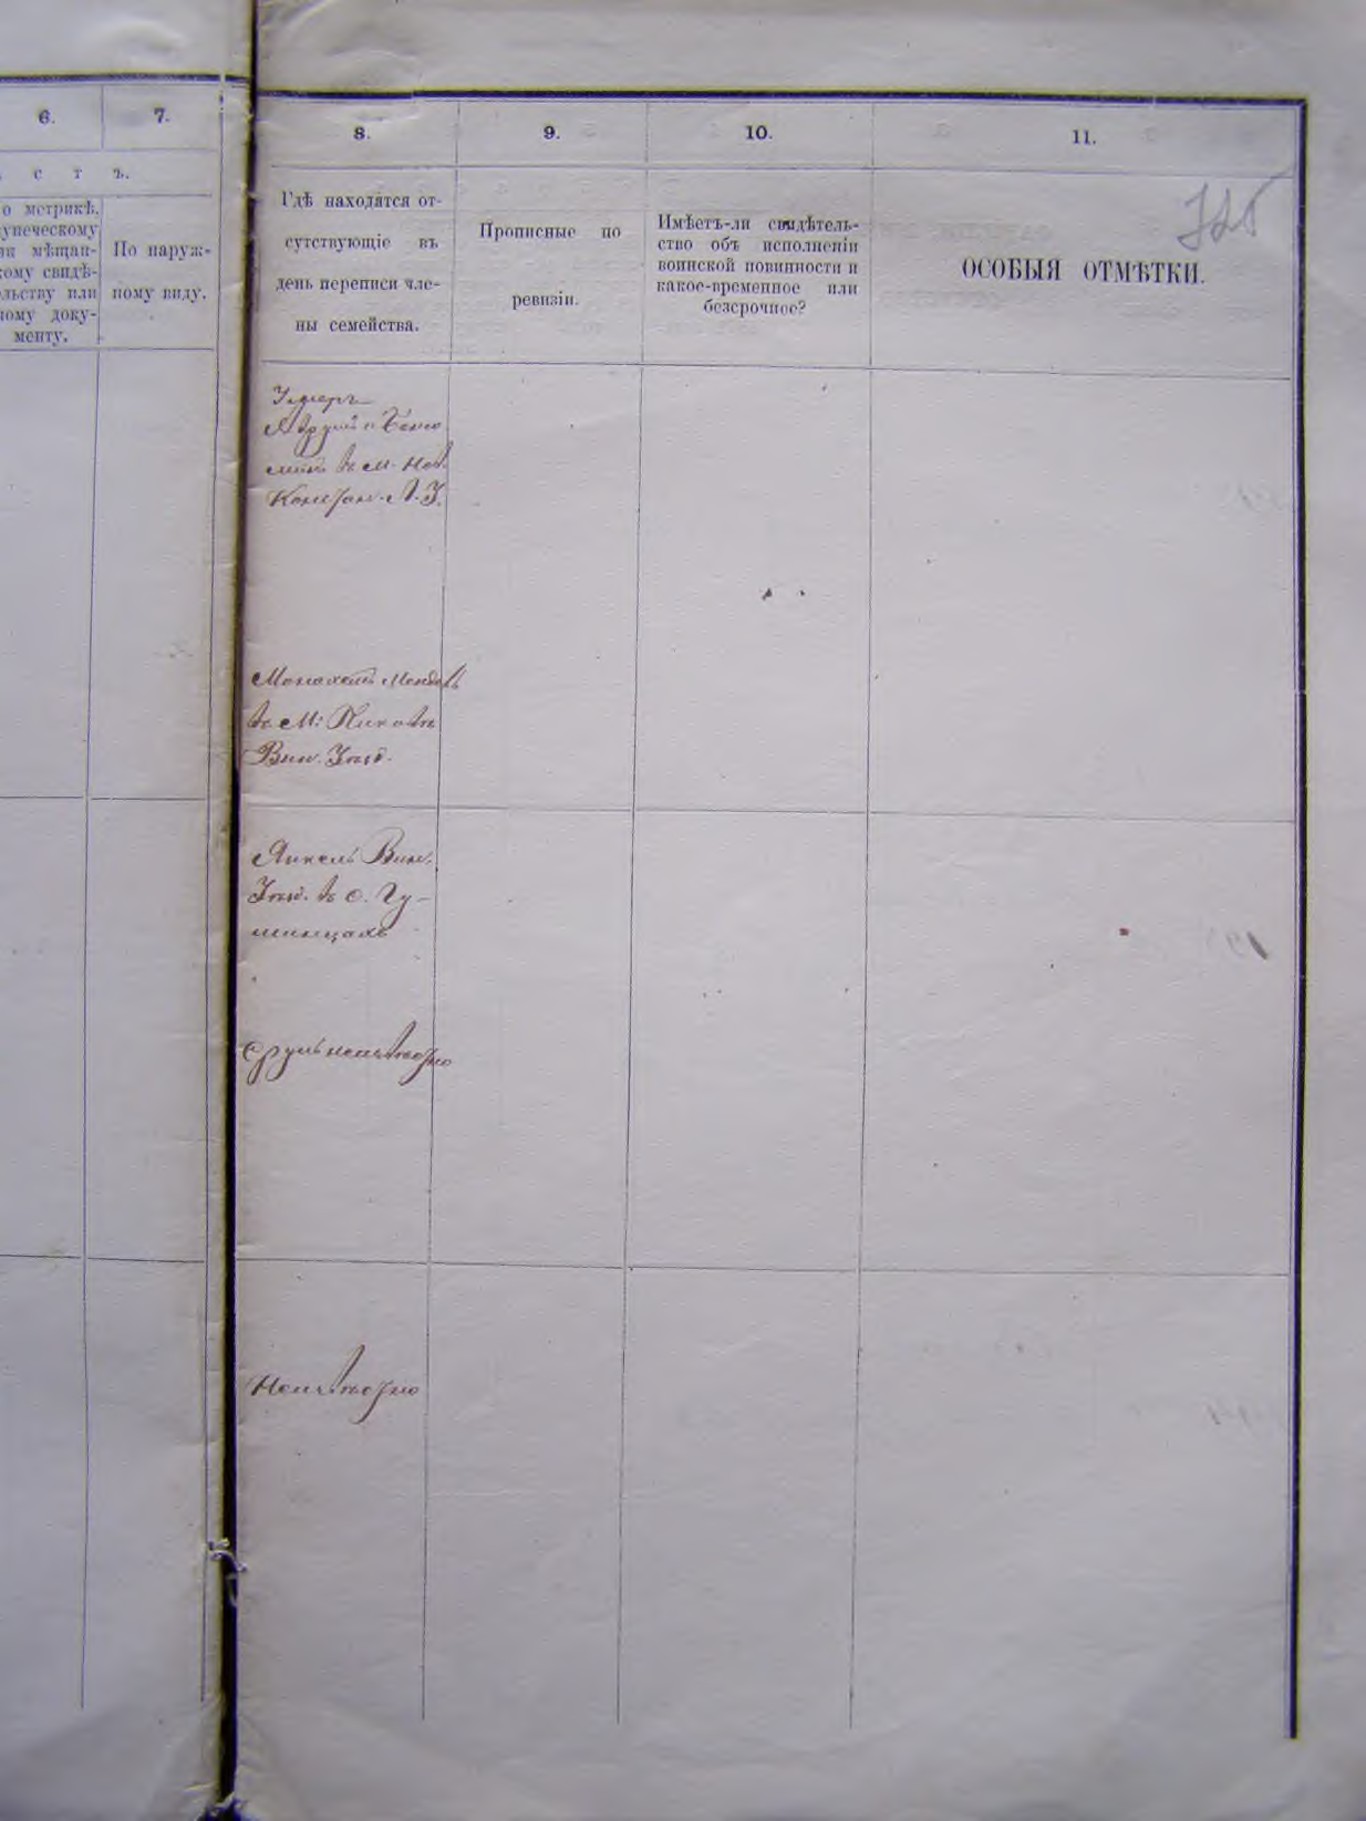 6.
7.
с т ъ.
о метрикѣ,
купеческому
ли мѣщан-
кому свидѣ-
льству или
ному доку-
менту.
По наруж-
ному виду.
8.
9.
10.
11.
Гдѣ находятся от-
сутствующіе въ
день переписи чле-
ны семейства.
Прописные по
ревизіи.
Имѣетъ-ли свидѣтель-
ство объ исполненіи
воинской повинности и
какое-временное или
безсрочное?
ОСОБЫЯ ОТМѢТКИ.
Умеръ
въ м. Нов.
Констан. Л. У.
въ М: Пиковѣ
Вин. Уѣзд.
Янкель Вин.
Уѣзд. въ с. Гу-
минцахъ
Сруль неизвѣстно
Неизвѣстно